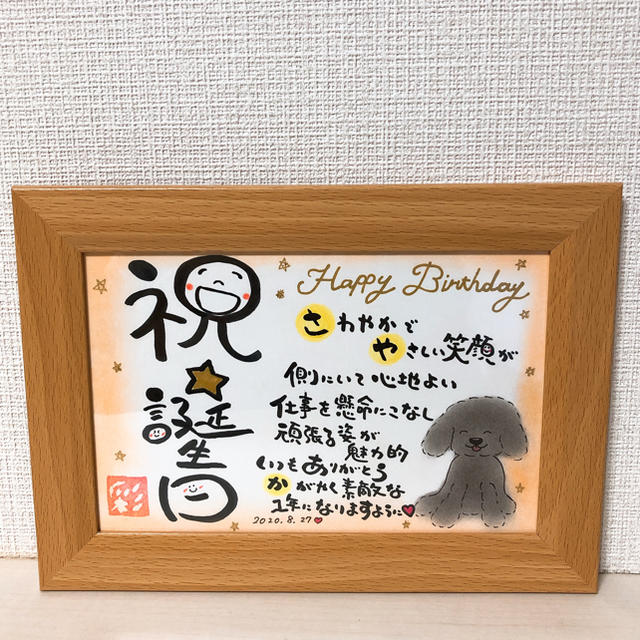 祝☆誕生日
Happy Birthday
さわやかで
やさしい笑顔が
側にいて心地よい
仕事を懸命にこなし
頑張る姿が
魅力的
いつもありがとう
かがやく素敵な
1年になりますように♥
2020.8.27♥